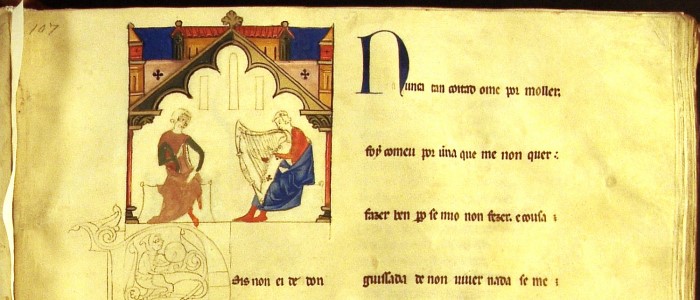 107
Nunca tan coitad ome por moller.
foy comeu por una que me non quer :
fazer ben po se mio non fezer. e cousa :
guissada de non viuer nada se me :
Ois non ei de don